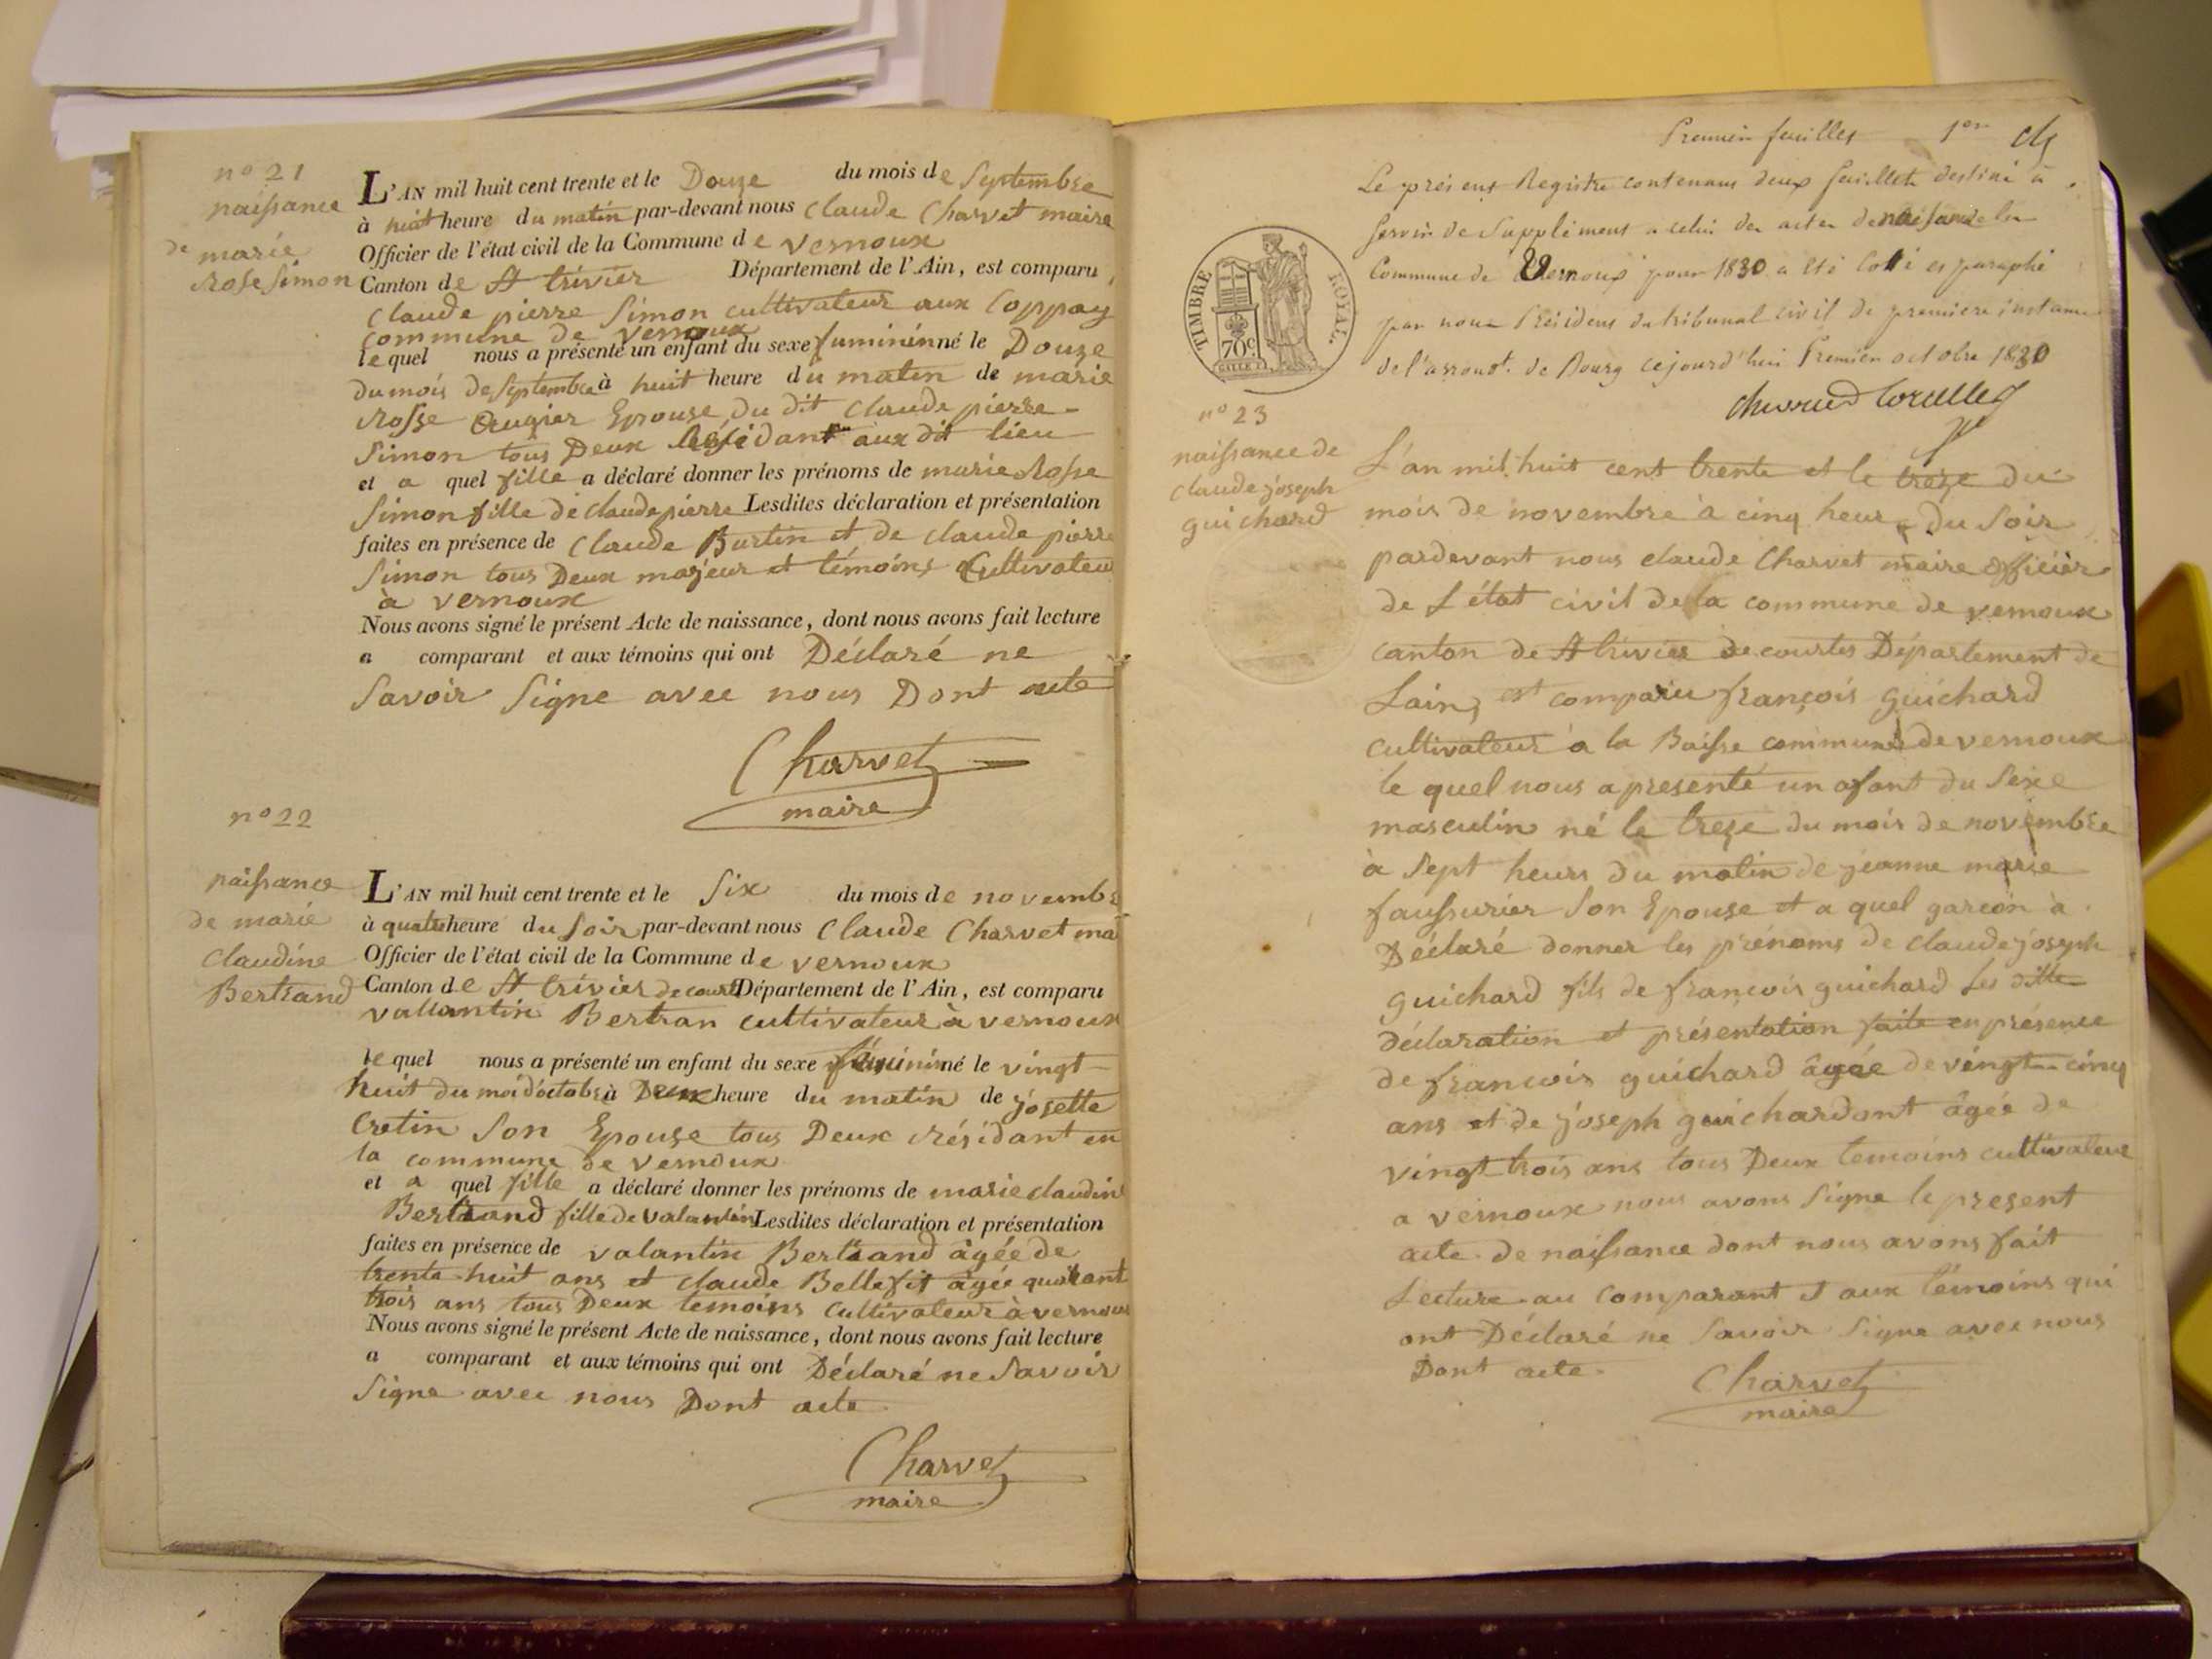 n° 21
naissance
de marie
Rose Simon
L'AN mil huit cent trente et le Douze du mois de Septembre
à huit heure du matin par-devant nous Claude Charvet maire
Officier de l'état civil de la Commune de vernoux
Canton de St trivier Département de l'Ain, est comparu
Claude pierre Simon cultivateur aux Coppay
commune de vernoux
lequel nous a présenté un enfant du sexe fuminin né le Douze
du mois de septembre à huit heure du matin de marie
Rosse Epouse du dit Claude pierre
Simon tous Deux Residant aux dit lieu
et a quel fille a déclaré donner les prénoms de marie Rosse
Simon fille de claude pierre Lesdites déclaration et présentation
faites en présence de Claude Burtin et de claude pierre
Simon tous Deux majeur et témoins Cultivateu
à vernoux
Nous avons signé le présent Acte de naissance, dont nous avons fait lecture
a comparant et aux témoins qui ont Déclaré ne
Savoir Signe avec nous Dont acte
Charvet
maire
n° 22
naissance
de marie
Claudine
Bertrand
L'AN mil huit cent trente et le Six du mois de novembr
à quatre heure du Soir par-devant nous Claude Charvet mai
Officier de l'état civil de la Commune de vernoux
Canton de St trivier de court Département de l'Ain, est comparu
vallantin Bertran cultivateur à vernoux
lequel nous a présenté un enfant du sexe féminin né le vingt
huit du moi d'octobre à Deux heure du matin de josette
Cretin Son Epouse tous Deux résidant en
la commune de vernoux
et a quel fille a déclaré donner les prénoms de marie claudine
Bertrand fille de valantin Lesdites déclaration et présentation
faites en présence de valantin Bertrand âgée de
trente huit ans et claude Bellefit âgée quarant
trois ans tous Deux temoins Cultivateur à vernoux
Nous avons signé le présent Acte de naissance, dont nous avons fait lecture
a comparant et aux témoins qui ont Déclaré ne Savoir
Signe avec nous Dont acte
Charvet
maire
Premier feuillet 1er
Le présent Registre contenant deux feuillets destiné à
servir de Supplément à celui des actes de naissance de la
Commune de Vernoux pour 1830 a été Cotté et paraphé
par nous Président du tribunal civil de première instance
de l'arrondt. de Bourg cejourd'hui Premier octobre 1830
TIMBRE ROYAL
70c
n° 23
naissance de
claude joseph
guichard
L'an mil huit cent trente et le treze du
mois de novembre à cinq heur du Soir
pardevant nous claude Charvet maire officier
de L'état civil de la commune de vernoux
canton de St trivier de courtes Département de
Lain, est comparu françois guichard
cultivateur a la Baisse commune de vernoux
le quel nous a presenté un afant du Sexe
masculin né le treze du mois de novembre
à Sept heurs du matin de jeanne marie
faussurier Son Epouse et a quel garcon a
Déclaré donner les prénoms de claude joseph
guichard fils de francois guichard Les ditte
déclaration et présentation faite en présence
de francois guichard âgée de vingt-cinq
ans et de joseph guichardant âgée de
vingt trois ans tous Deux temoins cultivateur
a vernoux nous avons Signe le present
acte de naissance dont nous avons fait
Lecture au comparant et aux témoins qui
ont Déclaré ne Savoir Signe avec nous
Dont acte.
Charvet
maire